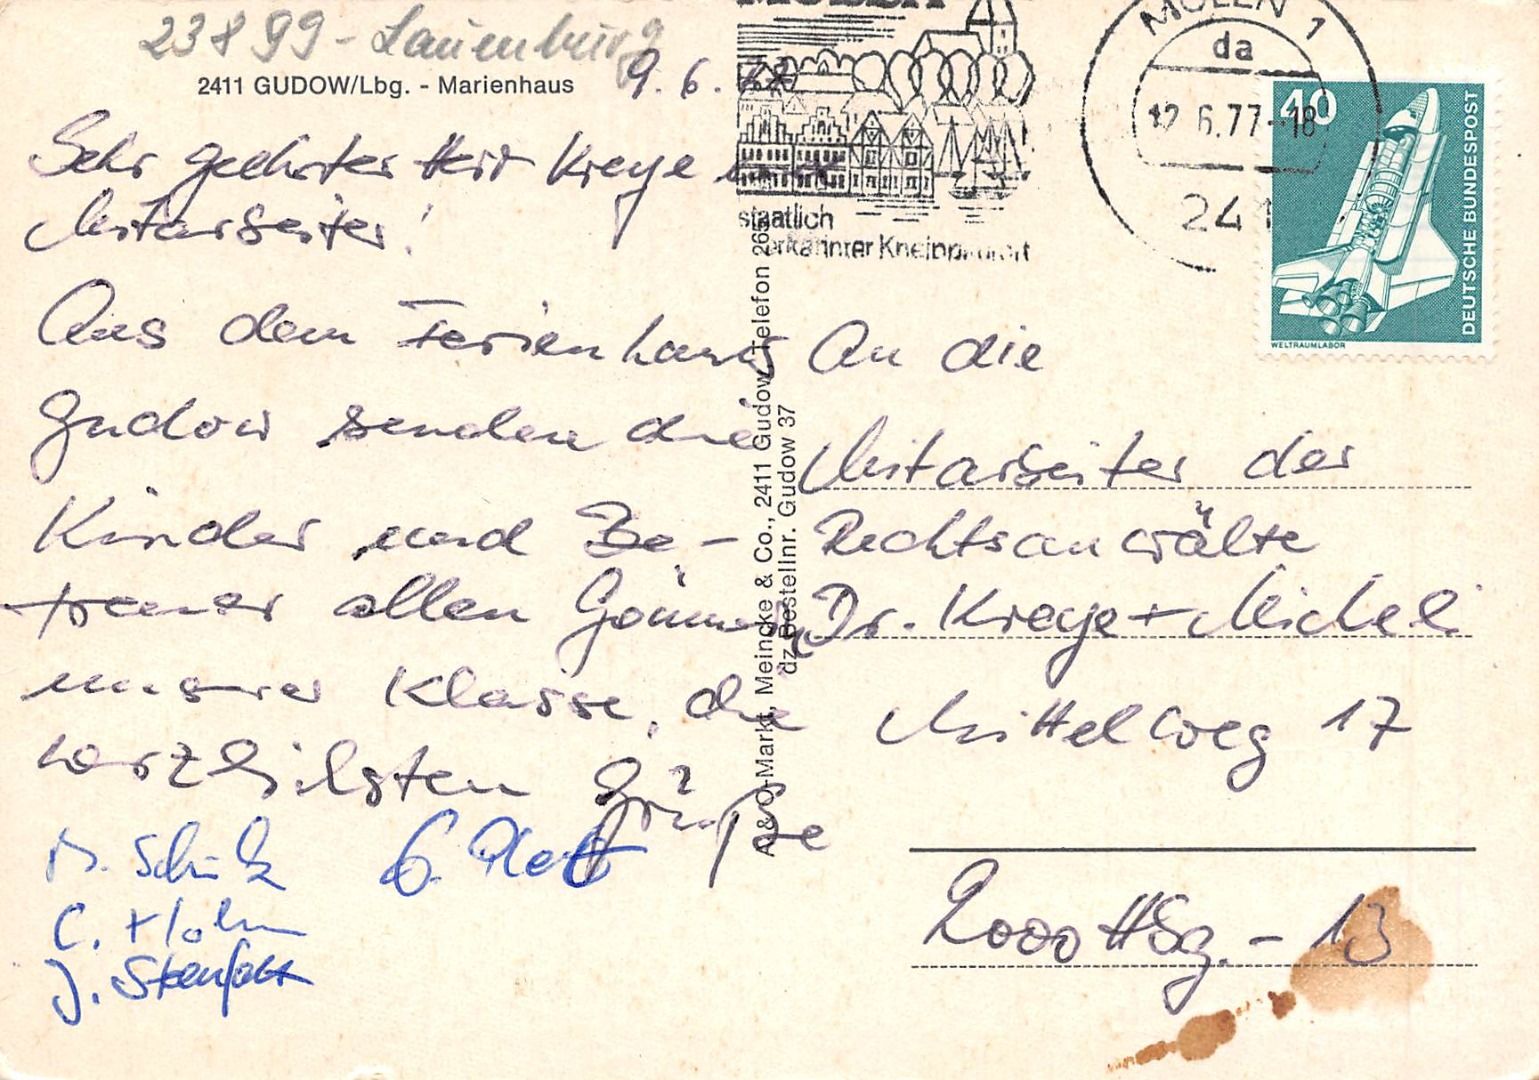 23899 - Lauenburg
2411 GUDOW/Lbg. - Marienhaus
9.6.77
Sehr geehrter Herr Kreye und
Mitarbeiter!
Aus dem Ferienhaus
Gudow senden die
Kinder und Be-
treuer allen Gönnern
unserer Klasse, die
herzlichsten Grüße
C. Hohn
A & O-Markt, Meincke & Co., 2411 Gudow, Telefon 265
dz Bestellnr. Gudow 37
staatlich
anerkannter Kneippkurort
MÖLLN 1
da
12.6.77-18
241
40
DEUTSCHE BUNDESPOST
WELTRAUMLABOR
An die
Mitarbeiter der
Rechtsanwälte
Dr. Kreye + Michel
Mittelweg 17
2000 Hbg. - 13